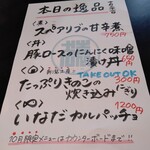 本日の逸品
〈主〉
スペアリブの甘辛煮
750円
〈丼〉
豚ロースのにんにく味噌
漬け丼
650円
TAKE OUT OK
たっぷりきのこの
300円
炊き込みおにぎり
1200円
いなだカルパッチョ
10月開催メニューはカウンターボードまで!!